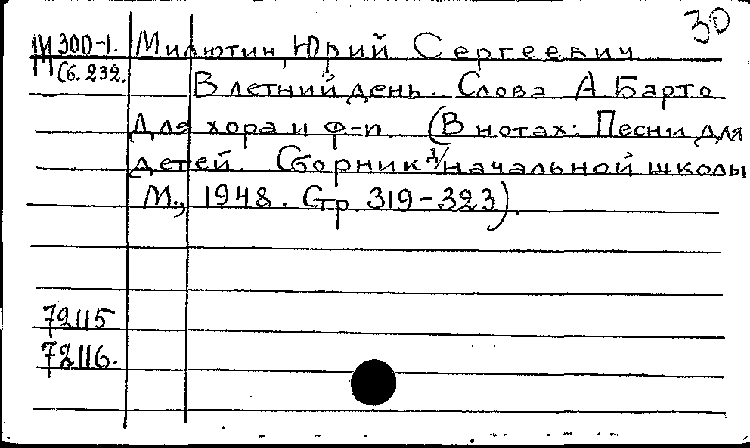 30
М 300-1. Милютин, Юрий Сергеевич
Сб. 232.
В летний день. Слова А Барто
Для хора и ф-п. (В нотах: Песни для
детей. Сборник д/начальной школы
М., 1948. Стр. 319-323).
72115
72116.